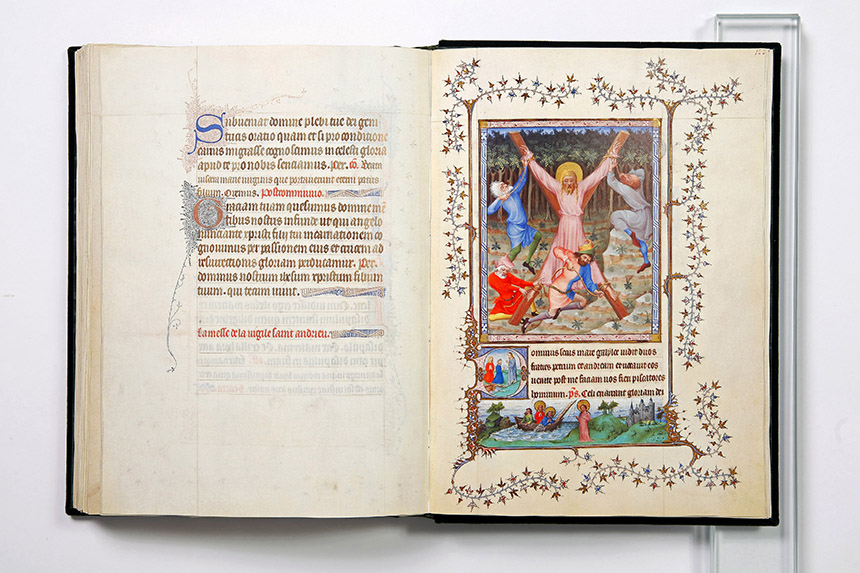 Subveniat domine plebi tue dei geni
tricis oratio quam et si pro conditione
carnis migrasse cognoscimus in celesti gloria
apud te pro nobis sentiamus. Per. co. Beata
viscera marie virginis que portaverunt eterni patris
filium. Oremus. Postcommunio.
Graciam tuam quesumus domine men
tibus nostris infunde ut qui angelo
nunciante xpristi filii tui incarnationem co
gnovimus per passionem eius et crucem ad
resurectionis gloriam perducamur. Per
dominum nostrum ihesum xpristum filium
tuum. qui tecum vivit.
La messe de la vigile saint andrieu.
Dominus secus mare galilee vidit duos
fratres petrum et andream et vocavit eos
venite post me faciam vos fieri piscatores
hominum. ps. Celi enarrant gloriam dei